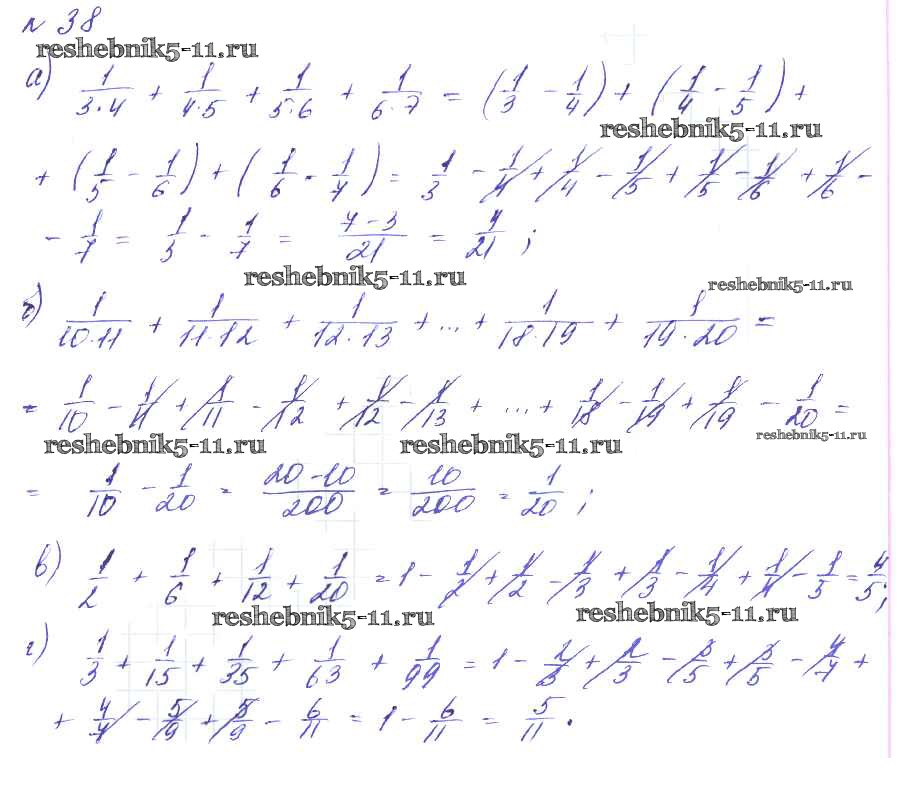 № 38
reshebnik5-11.ru
а) 1/(3·4) + 1/(4·5) + 1/(5·6) + 1/(6·7) = (1/3 − 1/4) + (1/4 − 1/5) +
reshebnik5-11.ru
+ (1/5 − 1/6) + (1/6 - 1/7) = 1/3 − 1/4 + 1/4 − 1/5 + 1/5 − 1/6 + 1/6 −
− 1/7 = 1/3 − 1/7 = (7−3)/21 = 4/21 ;
reshebnik5-11.ru
reshebnik5-11.ru
б) 1/(10·11) + 1/(11·12) + 1/(12·13) + ... + 1/(18·19) + 1/(19·20) =
= 1/10 − 1/11 + 1/11 − 1/12 + 1/12 − 1/13 + ... + 1/18 − 1/19 + 1/19 − 1/20 =
reshebnik5-11.ru reshebnik5-11.ru reshebnik5-11.ru
= 1/10 − 1/20 = (20−10)/200 = 10/200 = 1/20 ;
в) 1/2 + 1/6 + 1/12 + 1/20 = 1 − 1/2 + 1/2 − 1/3 + 1/3 − 1/4 + 1/4 − 1/5 = 4/5 ;
reshebnik5-11.ru reshebnik5-11.ru
г) 1/3 + 1/15 + 1/35 + 1/63 + 1/99 = 1 − 2/3 + 2/3 − 3/5 + 3/5 − 4/7 +
+ 4/7 − 5/9 + 5/9 − 6/11 = 1 − 6/11 = 5/11 .